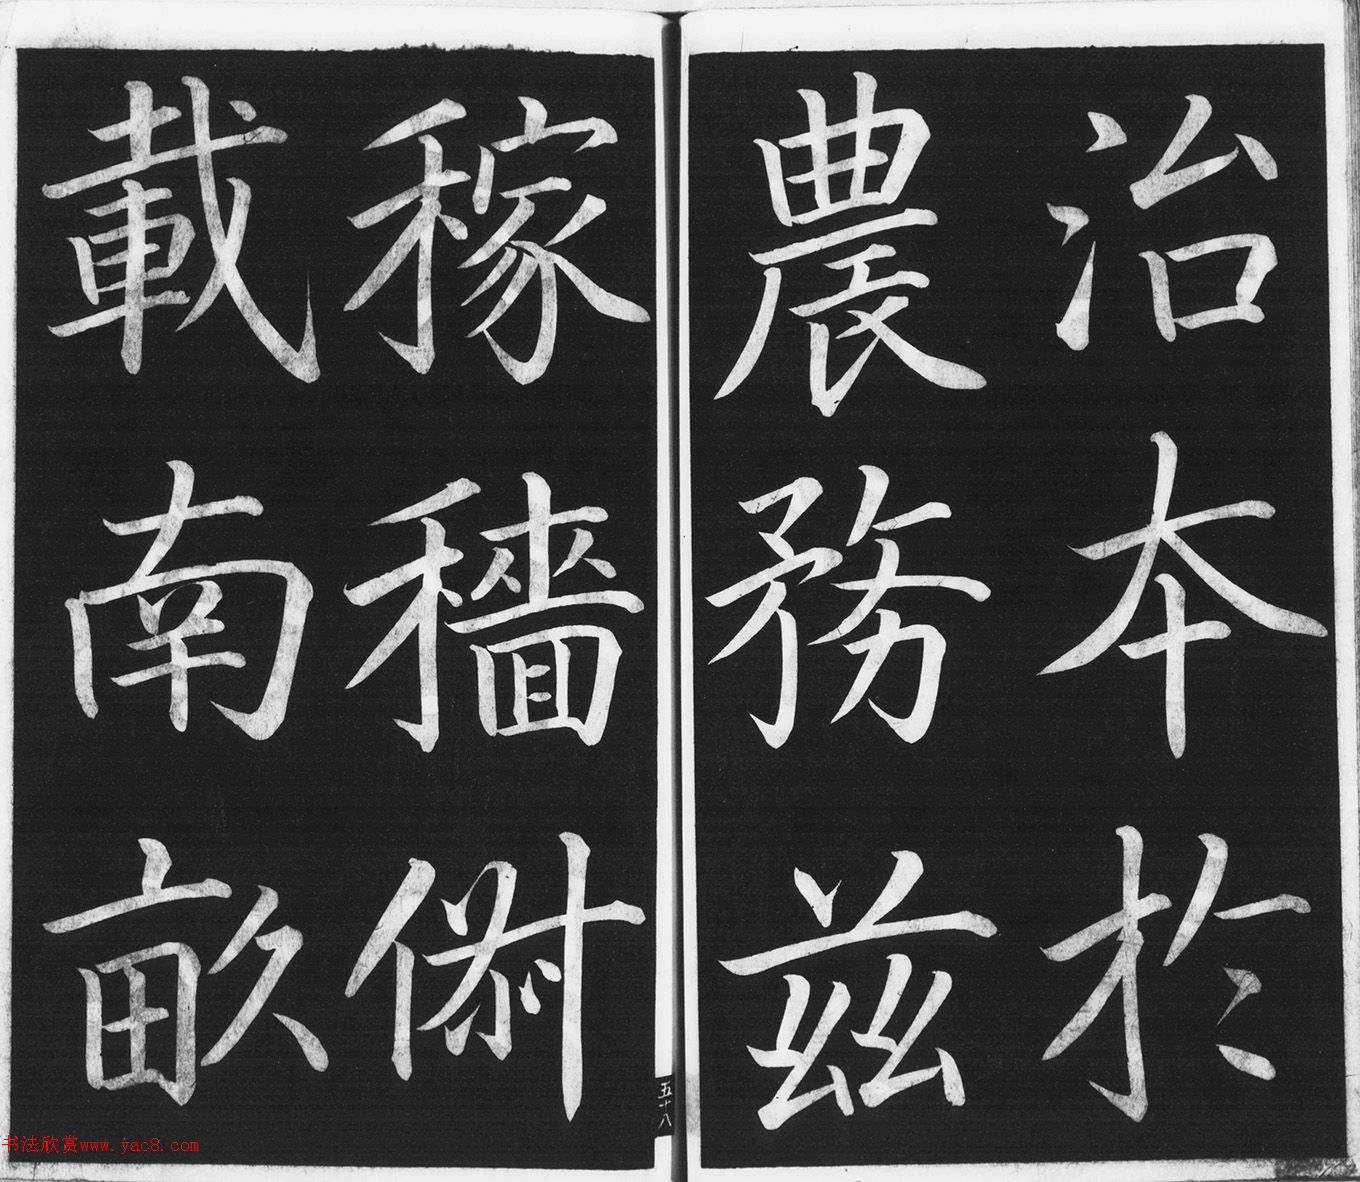 治本於
農務茲
稼穡俶
載南畝
五十八
书法欣赏www.yac8.com